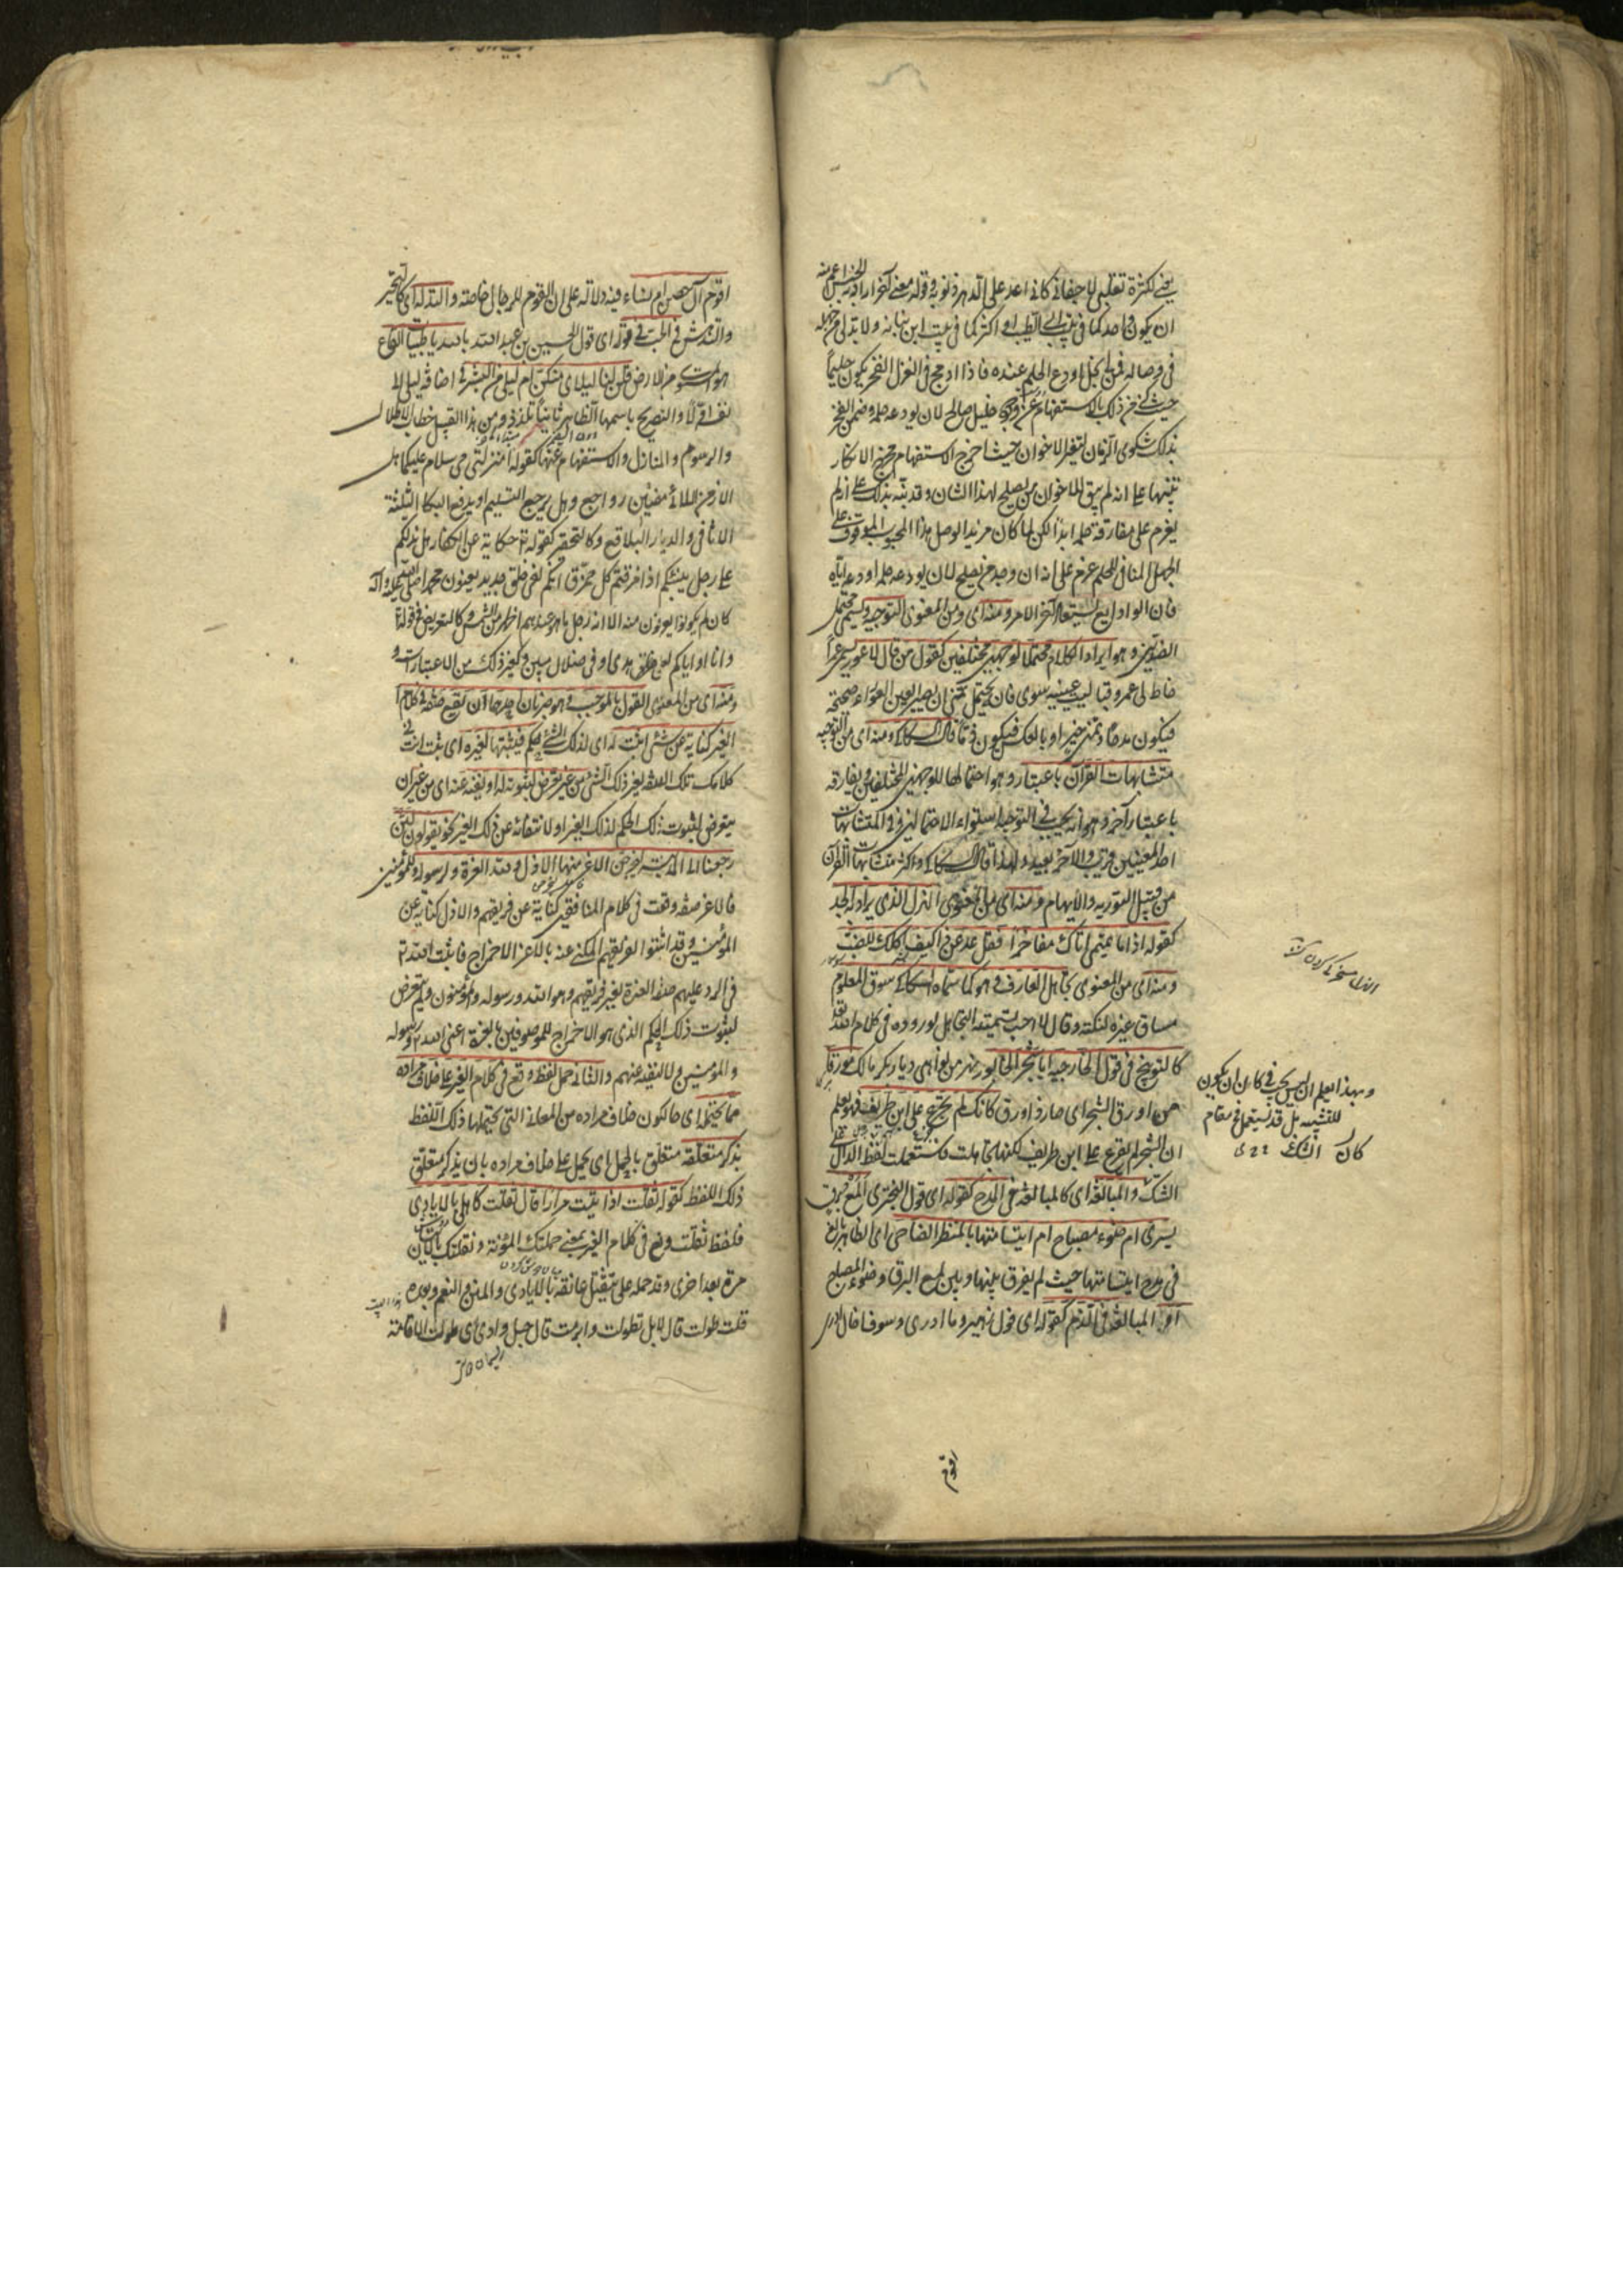 يعنى لكثرة تقليبى لاجفانى كانى اعد على الدهر ذنوبه وقوله معنى آخر اراد به الجنس اعم منه
ان يكون واحدا كما فى بيت ابى الطيب او اكثر كما فى بيت ابن نباته ولا بد لى من جهلة
فى وصاله فمن لى بخل اودع الحلم عنده فاذا ادمج فى الغزل الفخر بكونه حليما
حيث كنى عن ذلك بالاستفهام عن وجود خليل صالح لان يودعه حلمه وضمن الفخر
بذلك شكوى الزمان لتغير الاخوان حيث اخرج الاستفهام مخرج الانكار
تنبيها على انه لم يبق للاخوان من يصلح لهذا الشان وقد نبه بذلك على انه لم
يعزم على مفارقة حلمه ابدا لكن لما كان مريدا لوصل هذا المحبوب الموقوف على
الجهل المنافى للحلم عزم على انه ان وجد من يصلح لان يودعه حلمه اودعه اياه
فان الودايع تستعاد آخر الامر ومنه اى ومن المعنوى التوجيه ويسمى محتمل
الضدين وهو ايراد الكلام محتملا لوجهين مختلفين كقول من قال لاعور يسمى عمرا
خاط لى عمرو قبا ليت عينيه سوى فانه يحتمل تمنى ان يصير العين العوراء صحيحة
فيكون مدحا وتمنى خير او بالعكس فيكون ذما قال السكاكى ومنه اى من التوجيه
متشابهات القرآن باعتبار وهو احتمالها للوجهين المختلفين ويفارقه
باعتبار آخر وهو انه يجب فى التوجيه استواء الاحتمالين وفى المتشابهات
احد المعنيين قريب والآخر بعيد ولهذا قال السكاكى واكثر متشابهات القرآن
من قبيل التورية والايهام ومنه اى من المعنوى الهزل الذى يراد به الجد
كقوله اذا ما تميمى اتاك مفاخرا فقل عد عن ذا كيف اكلك للضب
ومنه اى من المعنوى تجاهل العارف وهو كما سماه السكاكى سوق المعلوم
مساق غيره لنكتة وقال لا احب تسميته بالتجاهل لوروده فى كلام الله تعالى
كالتوبيخ فى قول الخارجية ايا شجر الخابور هو نهر من نواحى ديار بكر مالك مورقا
من اورق الشجر اى صار ذا ورق كانك لم تجزع على ابن طريف فهو يعلم
ان الشجر لم تجزع على ابن طريف لكنها تجاهلت فاستعملت لفظ الدال على
الشك والمبالغة اى كالمبالغة فى المدح كقوله اى قول البحترى المع برق
يسرى ام ضوء مصباح ام ابتسامتها بالمنظر الضاحى اى الظاهر بالغ
فى مدح ابتسامتها حيث لم يفرق بينها وبين لمع البرق وضوء المصباح
او المبالغة فى الذم كقوله اى قول زهير وما ادرى وسوف اخال ادرى
وبهذا يعلم ان ليس يجب فى كان ان يكون
للتشبيه بل قد تستعمل فى مقام
كان الشك
اقوم
اقوم آل حصن ام نساء فيه دلالة على ان القوم للرجال خاصة والتدله اى كالتحير
والتدهش فى الحب فى قوله اى قول الحسين بن عبد الله بالله يا ظبيات القاع
هو المستوى من الارض قلن لنا ليلاى منكن ام ليلى من البشر فى اضافة ليلى الى
نفسه اولا والتصريح باسمها الظاهر ثانيا تلذذ ومن هذا القبيل خطاب الاطلال
والرسوم والمنازل والاستفهام عنها كقوله امنزلتى مى سلام عليكما هل
الازمن اللائى مضين رواجع وهل يرجع التسليم او يدفع البكا الثلثة
الاثافى والديار البلاقع وكالتحقير كقوله تعالى حكاية عن الكفار هل ندلكم
على رجل ينبئكم اذا مزقتم كل ممزق انكم لفى خلق جديد يعنون محمدا صلى الله عليه وآله
كان لم يكونوا يعرفون منه الا انه رجل ما وهو عندهم اظهر من الشمس وكالتعريض فى قوله تعالى
وانا او اياكم لعلى هدى او فى ضلال مبين وكغير ذلك من الاعتبارات و
ومنه اى من المعنوى القول بالموجب وهو ضربان احدهما ان تقع صفة فى كلام
الغير كناية عن شئ اثبت له اى لذلك الشئ حكم فتثبتها لغيره اى تثبت انت فى
كلامك تلك الصفة لغير ذلك الشئ من غير تعرض لثبوته له او نفيه عنه اى من غير ان
يتعرض لثبوت ذلك الحكم لذلك الغير او لانتفائه عن ذلك الغير نحو يقولون لئن
رجعنا الى المدينة ليخرجن الاعز منها الاذل ولله العزة ولرسوله وللمؤمنين
فالاعز صفة وقعت فى كلام المنافقين كناية عن فريقهم والاذل كناية عن
المؤمنين وقد اثبتوا لفريقهم المكنى عنه بالاعز الاخراج فاثبت الله تعالى
فى الرد عليهم صفة العزة لغير فريقهم وهو الله ورسوله والمؤمنون ولم يتعرض
لثبوت ذلك الحكم الذى هو الاخراج للموصوفين بالعزة اعنى الله ورسوله
والمؤمنين ولا لنفيه عنهم والثانى حمل لفظ وقع فى كلام الغير على خلاف مراده
مما يحتمله اى حال كون خلاف مراده من المعانى التى يحتملها ذلك اللفظ
بذكر متعلقه متعلق بالحمل اى يحمل على خلاف مراده بان يذكر متعلق
ذلك اللفظ كقوله ثقلت اذا اتيت مرارا قال ثقلت كاهلى بالايادى
فلفظ ثقلت وقع فى كلام الغير بمعنى حملتك المؤنة وثقلتك بالاتيان
مرة بعد اخرى وقد حمله على تثقيل عاتقه بالايادى والمنن والنعم وبعده
قلت طولت قال لا بل تطولت وابرمت قال حبل ودادى اى طولت الاقامة